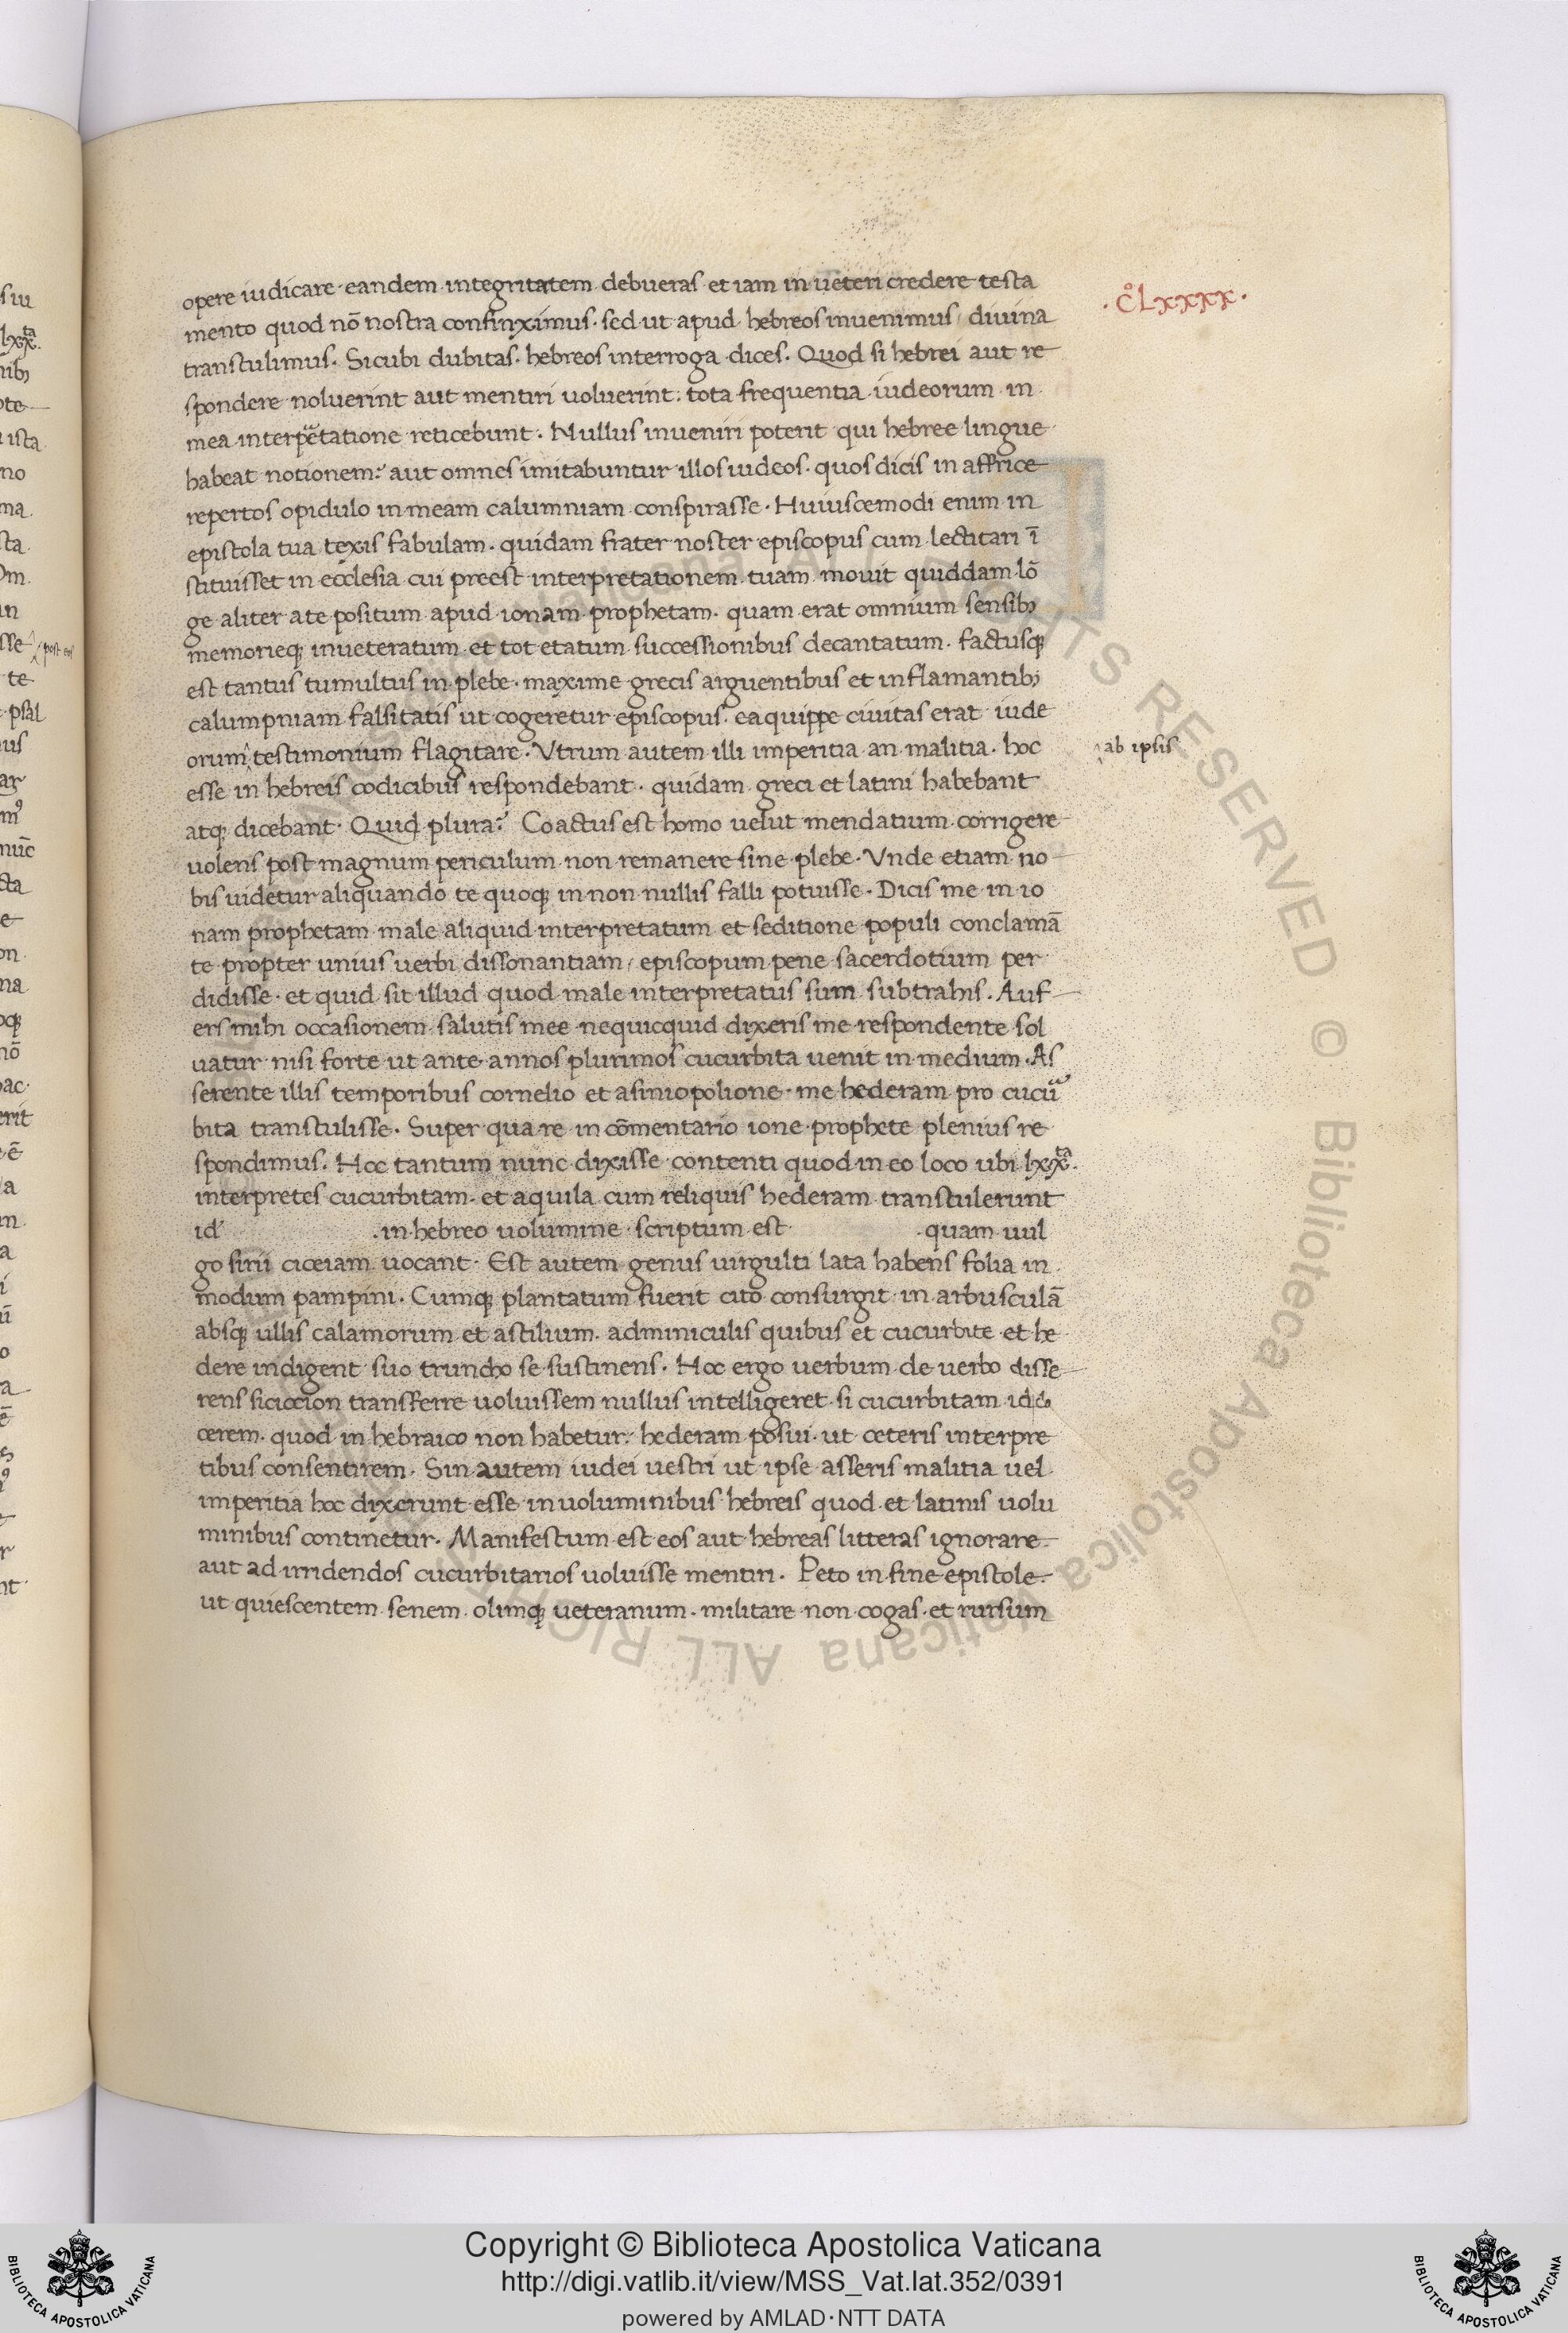 opere iudicare eandem integritatem debueras et iam in ueteri credere testa
·c̊Lxxxx·
mento quod nō nostra confinximus· sed ut apud hebreos inuenimus diuina
transtulimus. Sicubi dubitas· hebreos interroga dices. Quod si hebrei aut re
spondere noluerint aut mentiri uoluerint: tota frequentia iudeorum in
mea interpetatione reticebunt. Nullus inueniri poterit qui hebree lingue
habeat notionem: aut omnes imitabuntur illos iudeos· quos dicis in affrice
repertos opidulo in meam calumniam conspirasse. Huiuscemodi enim in
epistola tua texis fabulam· quidam frater noster episcopus cum lectitari ī
stituisset in ecclesia cui preest interpretationem tuam mouit quiddam lō
ge aliter a te positum apud ionam prophetam· quam erat omnium sensibꝫ
memorieqꝫ inueteratum et tot etatum successionibus decantatum· factusqꝫ
est tantus tumultus in plebe· maxime grecis arguentibus et inflamantibꝫ
calumpniam falsitatis ut cogeretur episcopus· ea quippe ciuitas erat iude
orum testimonium flagitare. Vtrum autem illi imperitia an malitia· hoc
ab ipsis
esse in hebreis codicibus respondebant· quidam greci et latini habebant
atqꝫ dicebant· Quid plura? Coactus est homo uelut mendatium corrigere
uolens post magnum periculum non remanere sine plebe. Vnde etiam no
bis uidetur aliquando te quoqꝫ in non nullis falli potuisse. Dicis me in io
nam prophetam male aliquid interpretatum et seditione populi conclamā
te propter unius uerbi dissonantiam, episcopum pene sacerdotium per
didisse· et quid sit illud quod male interpretatus sum subtrahis. Auf
ers mihi occasionem salutis mee nequicquid dixeris me respondente sol
uatur nisi forte ut ante annos plurimos cucurbita uenit in medium. As
serente illis temporibus cornelio et asinio polione· me hederam pro cucu
bita transtulisse. Super qua re in cōmentario ione prophete plenius re
spondimus. Hoc tantum nunc dixisse contenti quod in eo loco ubi lxx.
interpretes cucurbitam· et aquila cum reliquis hederam transtulerunt
id in hebreo uolumine scriptum est quam uul
go sirii ciceiam uocant· Est autem genus uirgulti lata habens folia in
modum pampini. Cumqꝫ plantatum fuerit cito consurgit in arbusculā
absqꝫ ullis calamorum et astilium· adminiculis quibus et cucurbite et he
dere indigent suo truncho se sustinens. Hoc ergo uerbum de uerbo disse
rens siciceion transferre uoluissem nullus intelligeret· si cucurbitam id di
cerem· quod in hebraico non habetur: hederam posui· ut ceteris interpre
tibus consentirem. Sin autem iudei uestri ut ipse asseris malitia uel
imperitia hoc dixerunt esse in uoluminibus hebreis quod et latinis uolu
minibus continetur. Manifestum est eos aut hebreas litteras ignorare
aut ad irridendos cucurbitarios uoluisse mentiri. Peto in fine epistole
ut quiescentem senem olimqꝫ ueteranum· militare non cogas· et rursum
Copyright © Biblioteca Apostolica Vaticana
http://digi.vatlib.it/view/MSS_Vat.lat.352/0391
powered by AMLAD·NTT DATA
BIBLIOTECA APOSTOLICA VATICANA
BIBLIOTECA APOSTOLICA VATICANA